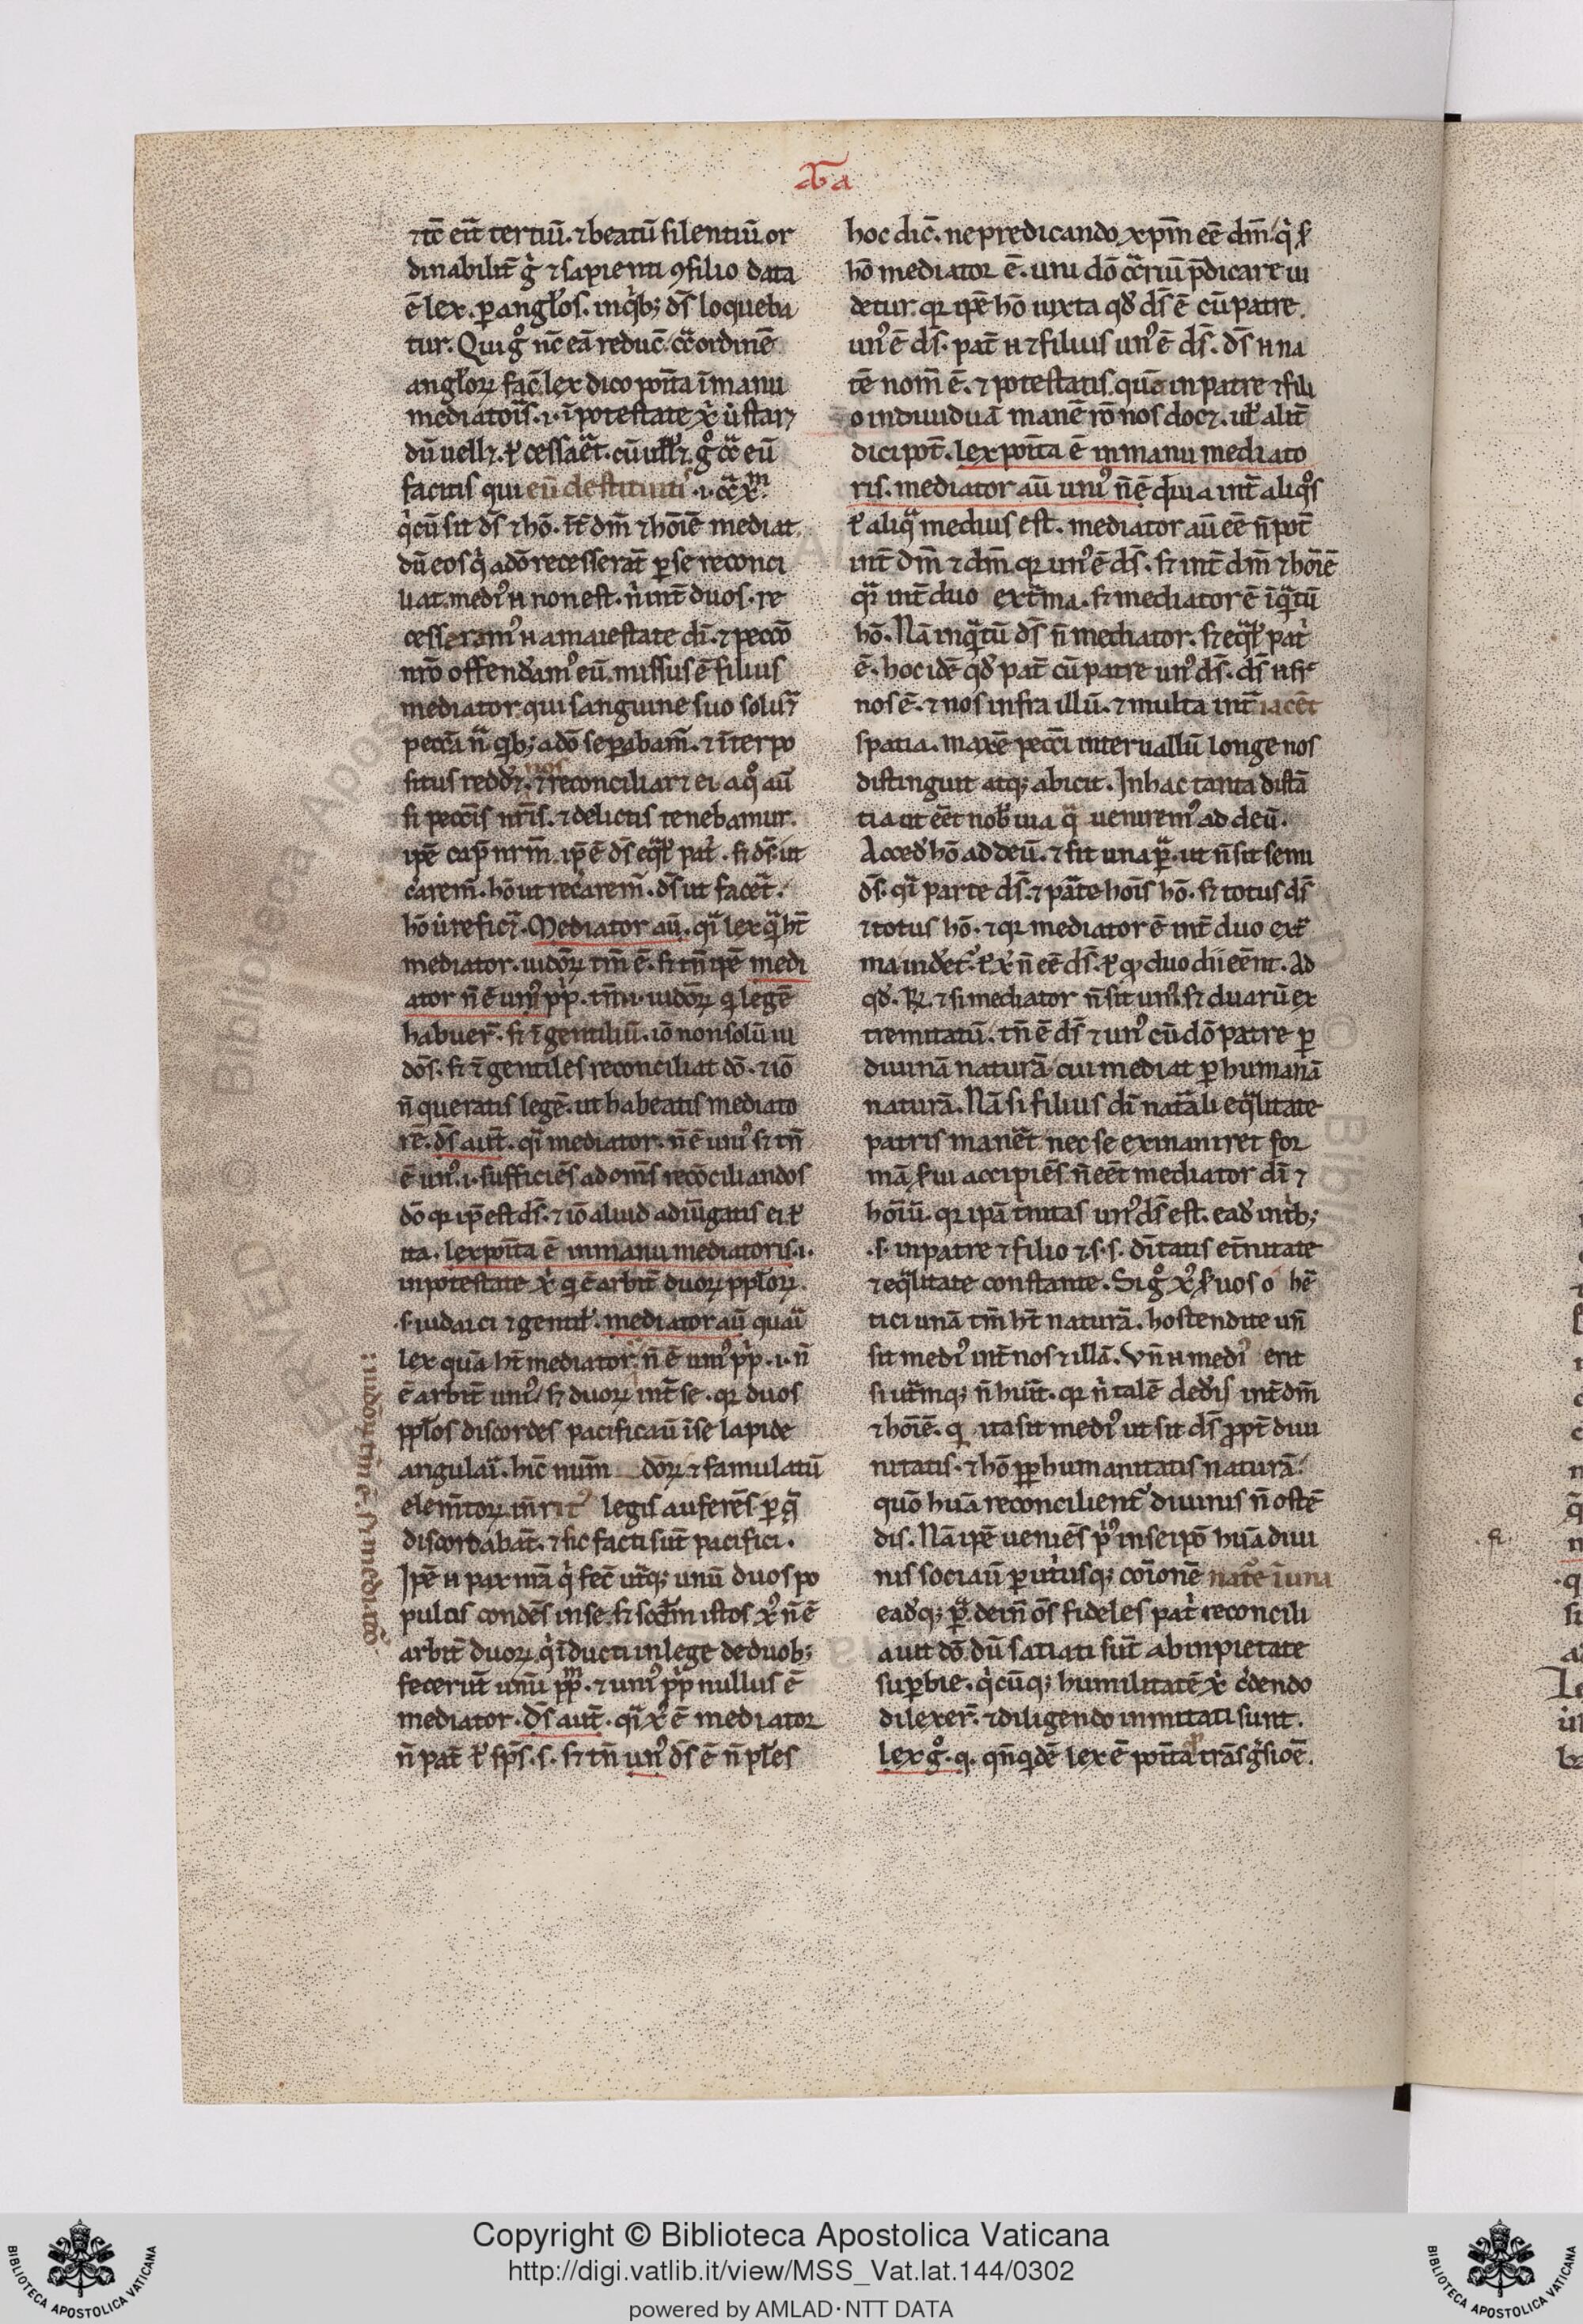 ad Ga
⁊ tc̄ erit tertiū. ⁊ beatū silentiū. or
dinabilit̄ g̊ ⁊ sapienti ꝯsilio data
ē lex. p anglos. in qͥbꝫ ds̄ loqueba
tur. Qui g̊ nc̄ eā reduc̄ cͣ ordinē
angloꝝ fac̄ lex dico poīta ī manu
mediatoris. i. ī potestate xͥ
facitis qui eū destituit
qͥ cū sit ds̄ ⁊ hō. īt̄ dm̄ ⁊ hoīem mediat
dū eos qͥ a dō recesserāt p se reconci
liat. mediꝰ n̄ non est. nͥ int̄ duos. re
cesseramꝰ n̄ a maiestate di. ⁊ pecc̄o
nr̄o offendamꝰ eū. missus ē filius
mediator. qui sanguine suo
pecc̄a nͣ qͥbꝫ a dō separabam̄. ⁊ īterpo
situs redd⁊. ⁊ nos reconciliar⁊ ei a qͦ aū
si pecc̄is nr̄is. ⁊ delictis tenebamur.
ipē cap̄ nr̄m. ip̄ ē ds̄ eqͣl patͥ. sꝫ ds̄ ut
carem̄. hō ut recͣrem̄. ds̄ ut facet̄.
hō ut reficͣ⁊. Mediator aū. qͣi lex qͣ ht̄
mediator. iudoꝝ tm̄ ē. sꝫ tn̄ ipē medi
ator n̄ ē unꝰ ppͥ. tm̄ i. iudoꝝ qͥ legē
habuer̄. sꝫ ⁊ gentiliū. iō non solū iu
dōs. sꝫ ⁊ gentiles reconciliat dō. ⁊ iō
n̄ queratis legē. ut habeatis mediato
rē. ds̄ aut̄. qͣi mediator. n̄ ē unꝰ sꝫ tn̄
ē unꝰ. i. sufficiēs ad om̄s recōciliandos
dō qꝛ ip̄ est ds̄. ⁊ iō aliud adiūgatis ei ł
ita. lex poīta ē in manu mediatoris. i.
in potestate xͥ qͥ ē arbit̄ duoꝝ pploꝝ.
s. iudaici ⁊ gentil. mediator aū quaī
lex quā ht̄ mediatorē. n̄ ē unꝰ ppͥ. i. n̄
ē arbit̄ unꝰ. sꝫ duoꝝ int̄ se. qꝛ duos
pplos discordes pacificaū ī se lapide
angulaī. hic nūm doꝝ ⁊ famulatū
elem̄toꝝ legis auferēs p qͣ
discordabāt. ⁊ sic facti sūt pacifici.
Ipē n̄ pax nr̄a qͥ fec̄ utͣqꝫ unū duos po
pulos condēs in se. sꝫ sc̄dm istos xͥ n̄ ē
arbit̄ duoꝝ qͥ īducti in lege de duobꝫ
fecerūt unū ppm. ⁊ unꝰ ppͥ nullus ē
mediator. ds̄ aut̄. qͣi xͥ ē mediator
n̄ pat̄ ł sps̄. s. sꝫ tn̄ unꝰ ds̄ ē n̄ ples
: iudoꝝ tm̄ ē. sꝫ mediatō
hoc dic̄. ne predicando xpm̄ eē dm̄. qͥ ꝭ
hō mediator ē. uni dō cͣriū p̄dicare ui
detur. qꝛ ipē hō iuxta qd ds̄ ē cū patre.
unꝰ ē ds̄. pat̄ n̄ ⁊ filius unꝰ ē ds̄. ds̄ n̄ na
tē nom̄ ē. ⁊ potestatis. quā in patre ⁊ fili
o indiuiduā manē rō nos doc⁊. ul alit̄
dici pot̄. lex poīta ē in manu mediato
ris. mediator aū unꝰ n̄ ē quia int̄ aliqͦs
ł aliqͣ medius est. mediator aū eē n̄ pot̄
int̄ dm̄ ⁊ dm̄ qꝛ unꝰ ē ds̄. sꝫ int̄ dm̄ ⁊ hoīem
qͣi int̄ duo extͣma. sꝫ mediator ē īqͣtū
hō. Nā inqͣtū ds̄ n̄ mediator. sꝫ eqͣl patͥ
ē. hoc idē qd pat̄ cū patre unꝰ ds̄. ds̄ n̄ suꝑ
nos ē. ⁊ nos infra illū. ⁊ multa int̄ iacēt
spatia. maxē pecc̄i interuallū longe nos
distinguit atqꝫ abicit. In hac tanta distā
tia ut eēt nob uia qͣ ueniremꝰ ad deū.
Acced hō ad deū. ⁊ fit una pͣ. ut n̄ sit semi
ds̄. qͣi parte ds̄. ⁊ pͣte hoīs hō. sꝫ totus ds̄
⁊ totus hō. ⁊ qꝛ mediator ē int̄ duo extͣ
ma uidet̄. ł xͥ n̄ eē ds̄. ł qꝙ duo dii eēnt. Ad
qd. ℞. ⁊ si mediator n̄ sit unꝰ sꝫ duarū ex
tremitatū. tn̄ ē ds̄ ⁊ unꝰ cū dō patre p
diuinā naturā. cui mediat p humanā
naturā. Nā si filius di natͣali eqͣlitate
patris manēt nec se exinaniret for
mā ꝭui accipiēs. n̄ eēt mediator di ⁊
hoīū. qꝛ ipā tͥnitas unꝰ ds̄ est. ead in tͥbꝫ
.s. in patre ⁊ filio ⁊ s. s. dītatis et̄nitate
⁊ eqͣlitate constante. Si g̊ xͥ ꝭuos o he
tici unā tm̄ ht̄ naturā. hostendite un̄
sit mediꝰ int̄ nos ⁊ illā. Vn̄ n̄ mediꝰ erit
si utͣmqꝫ n̄ huīt. qꝛ nͥ talē dedͥs int̄ dm̄
⁊ hoīem. qͥ ita sit mediꝰ ut sit ds̄ ꝓpt̄ diui
nitatis. ⁊ hō ꝓꝑ humanitatis naturā.
quō huā reconcilient̄ diuinis n̄ ostē
dis. Nā ipē ueniēs pͥꝰ in seipō huā diui
nis sociaū p utͥusqꝫ coīonē nat̄e ī una
eadqꝫ pͣ. dein̄ os̄ fideles patͥ reconcili
auit dō. dū satiati sūt ab inpietate
suꝑbie. qͥcūqꝫ humilitatē xͥ cͥdendo
dilexer̄. ⁊ diligendo inmitati sunt.
lex g̊. q. qn̄qͥdē lex ē poīta trāsgͣsioē.
Copyright © Biblioteca Apostolica Vaticana
http://digi.vatlib.it/view/MSS_Vat.lat.144/0302
powered by AMLAD · NTT DATA
BIBLIOTECA APOSTOLICA VATICANA
BIBLIOTECA APOSTOLICA VATICANA